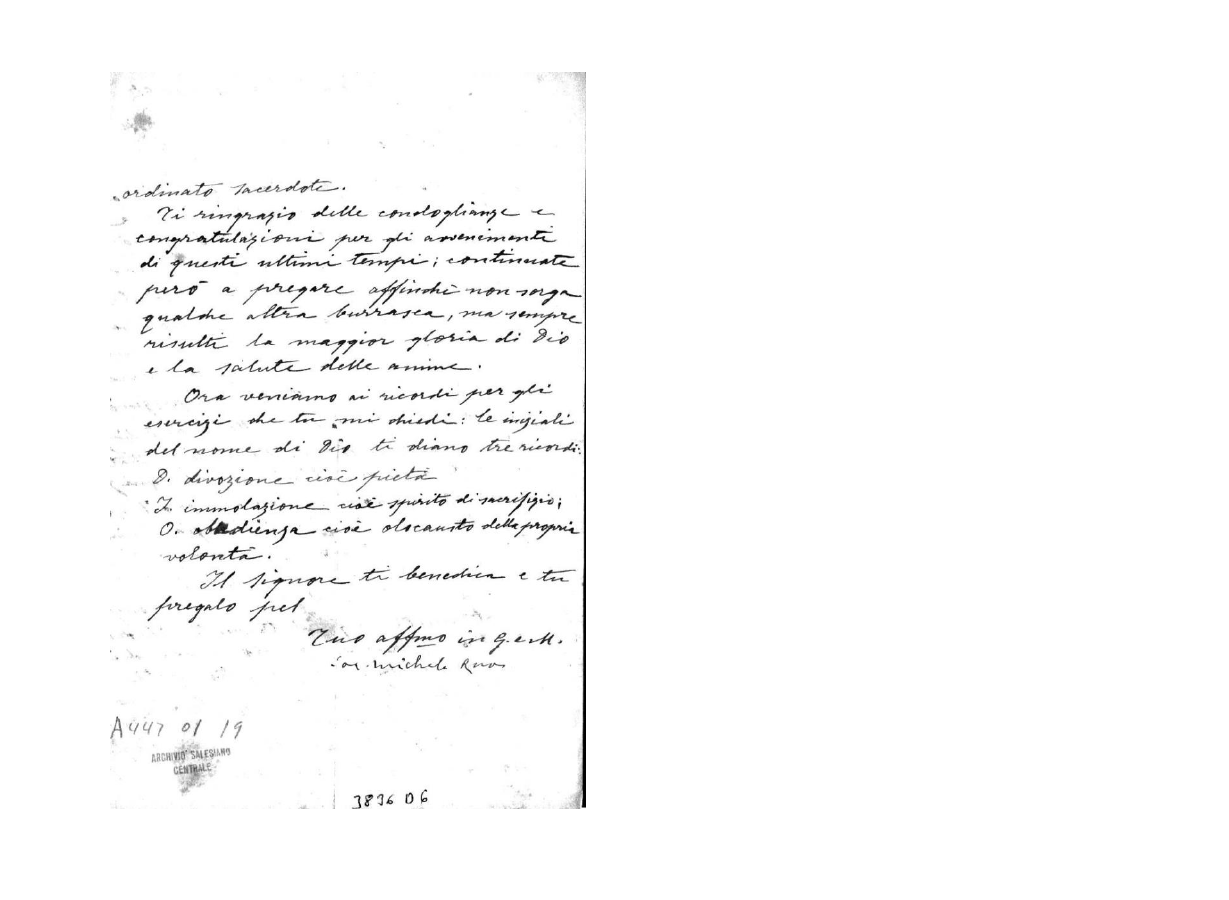 ordinato sacerdote.
Ti ringrazio delle condoglianze e
congratulazioni per gli avvenimenti
di questi ultimi tempi; continuate
però a pregare affinchè non sorga
qualche altra burrasca, ma sempre
risulti la maggior gloria di Dio
e la salute delle anime.
Ora veniamo ai ricordi per gli
esercizi che tu mi chiedi: le iniziali
del nome di Dio ti diano tre ricordi:
D. divozione cioè pietà
I. immolazione cioè spirito di sacrifizio;
O. obbedienza cioè olocausto della propria
volontà.
Il Signore ti benedica e tu
pregalo pel
Tuo affmo in G. e M.
Sac. Michele Rua
A447 01 19
ARCHIVIO SALESIANO
CENTRALE
3836 D6